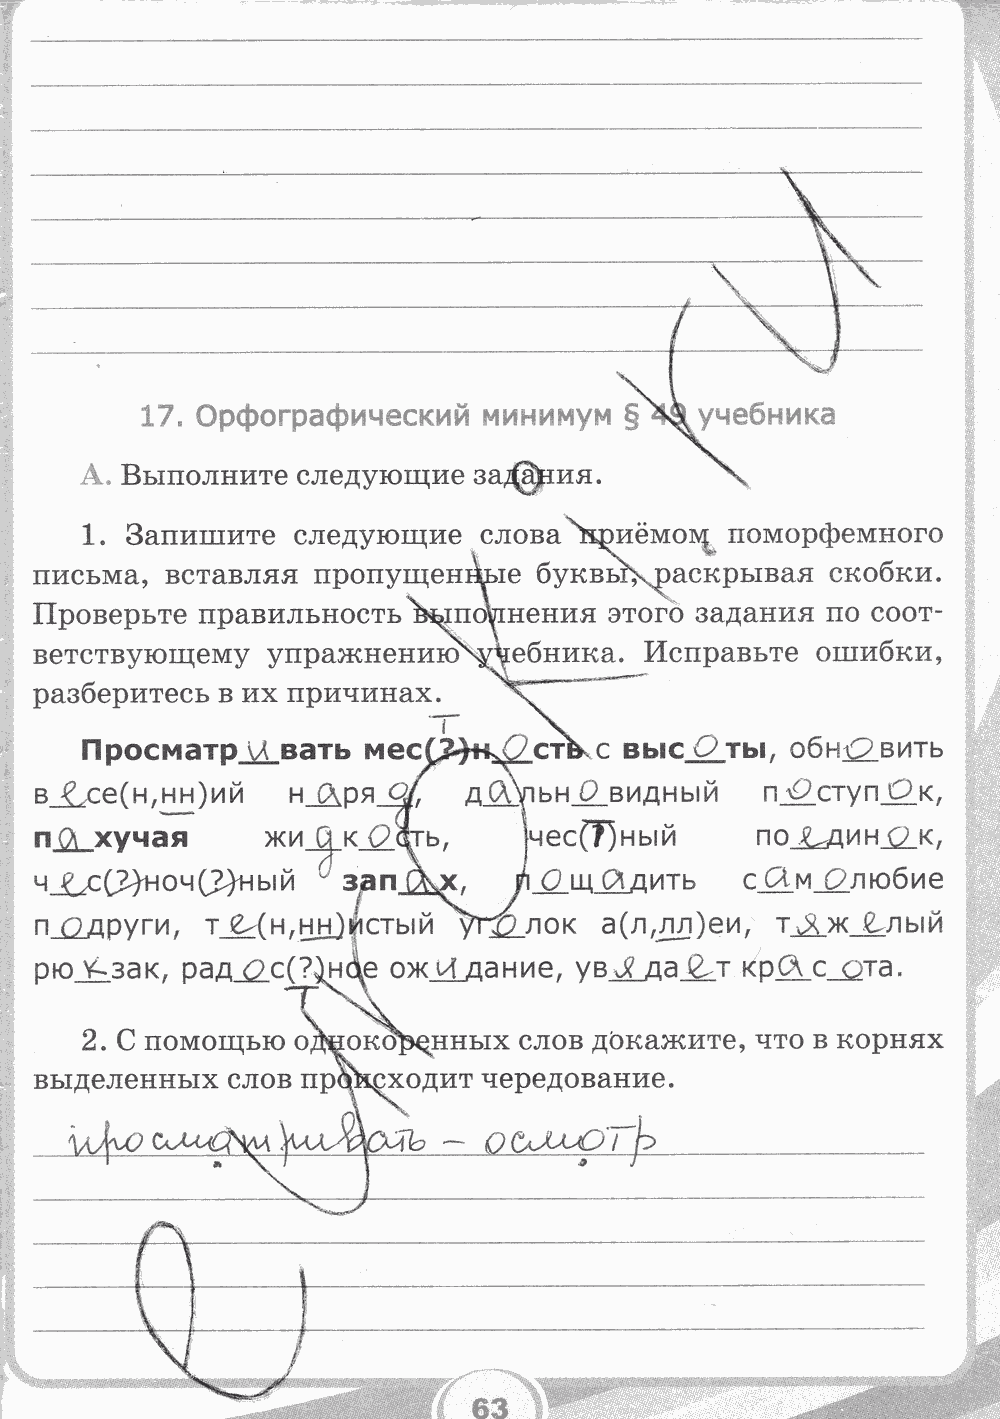 17. Орфографический минимум § 49 учебника
А. Выполните следующие задания.
1. Запишите следующие слова приёмом поморфемного
письма, вставляя пропущенные буквы, раскрывая скобки.
Проверьте правильность выполнения этого задания по соот-
ветствующему упражнению учебника. Исправьте ошибки,
разберитесь в их причинах.
Просматр_и_вать мес(?)н_о_сть с выс_о_ты, обн_о_вить
в_е_се(н,нн)ий н_а_ря_д_, д_а_льн_о_видный п_о_ступ_о_к,
п_а_хучая жи_д_к_о_сть, чес(т)ный по_е_дин_о_к,
ч_е_с(?)ноч(?)ный зап_а_х, п_о_щ_а_дить с_а_м_о_любие
п_о_други, т_е_(н,нн)истый уг_о_лок а(л,лл)еи, т_я_ж_е_лый
рю_к_зак, рад_о_с(?)ное ож_и_дание, ув_я_да_е_т кр_а_с_о_та.
2. С помощью однокоренных слов докажите, что в корнях
выделенных слов происходит чередование.
просматривать – осмотр
63